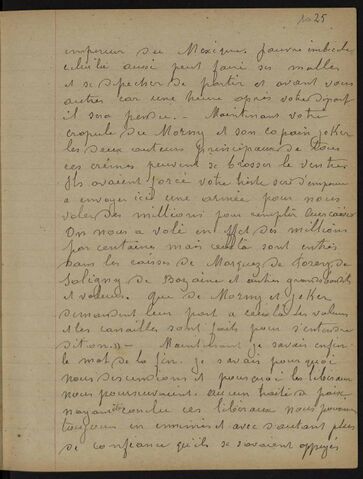 1025
empereur du Mexique. Pauvre imbécile
celui là aussi peut faire ses malles
et se depecher de partir et avant vous
autres car une heure après votre départ
il sera perdu. — Maintenant votre
crapule de Morny et son copain Jeker
les deux auteurs principaux de tous
ces crimes peuvent se brosser le ventre
Ils avaient forcé votre triste sire d'empereur
a envoyer ici une armée pour nous
voler des millions pour remplir leur caisse
On nous a volé en effet des millions
par centaine mais ceux là sont entrés
dans les caisses de Marquez de Forey de
Saligny de Bazaine et autres grands bandits
et voleurs. Que de Morny et Jeker
demandent leur part a ceux là les voleurs
et les canailles sont faits pour s'entendre
dit on.» — Maintenant je savais enfin
le mot de la fin. je savais pourquoi
nous descendions et pourquoi les libéraux
nous poursuivaient. Aucun traité de paix
n'ayant conclu ces libéraux nous poursuivaient
toujours en ennemis et avec d'autant plus
de confiance qu'ils se savaient appuyés